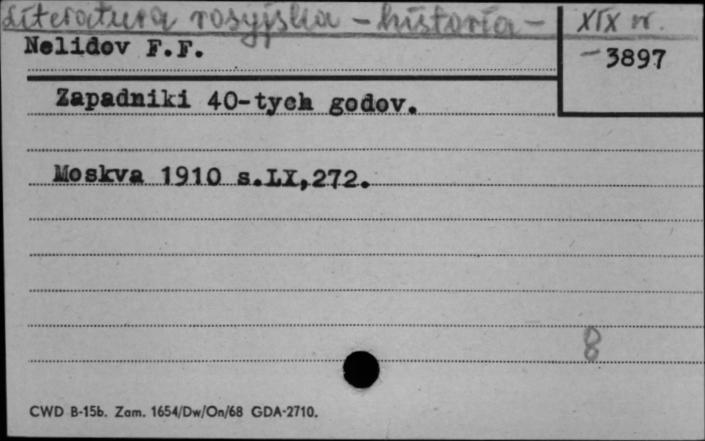 Literatura rosyjska - historia - XIX w.
Nelidov F.F.
- 3897
Zapadniki 40-tych godov.
Moskva 1910 s.LX,272.
8
CWD B-15b. Zam. 1654/Dw/On/68 GDA-2710.